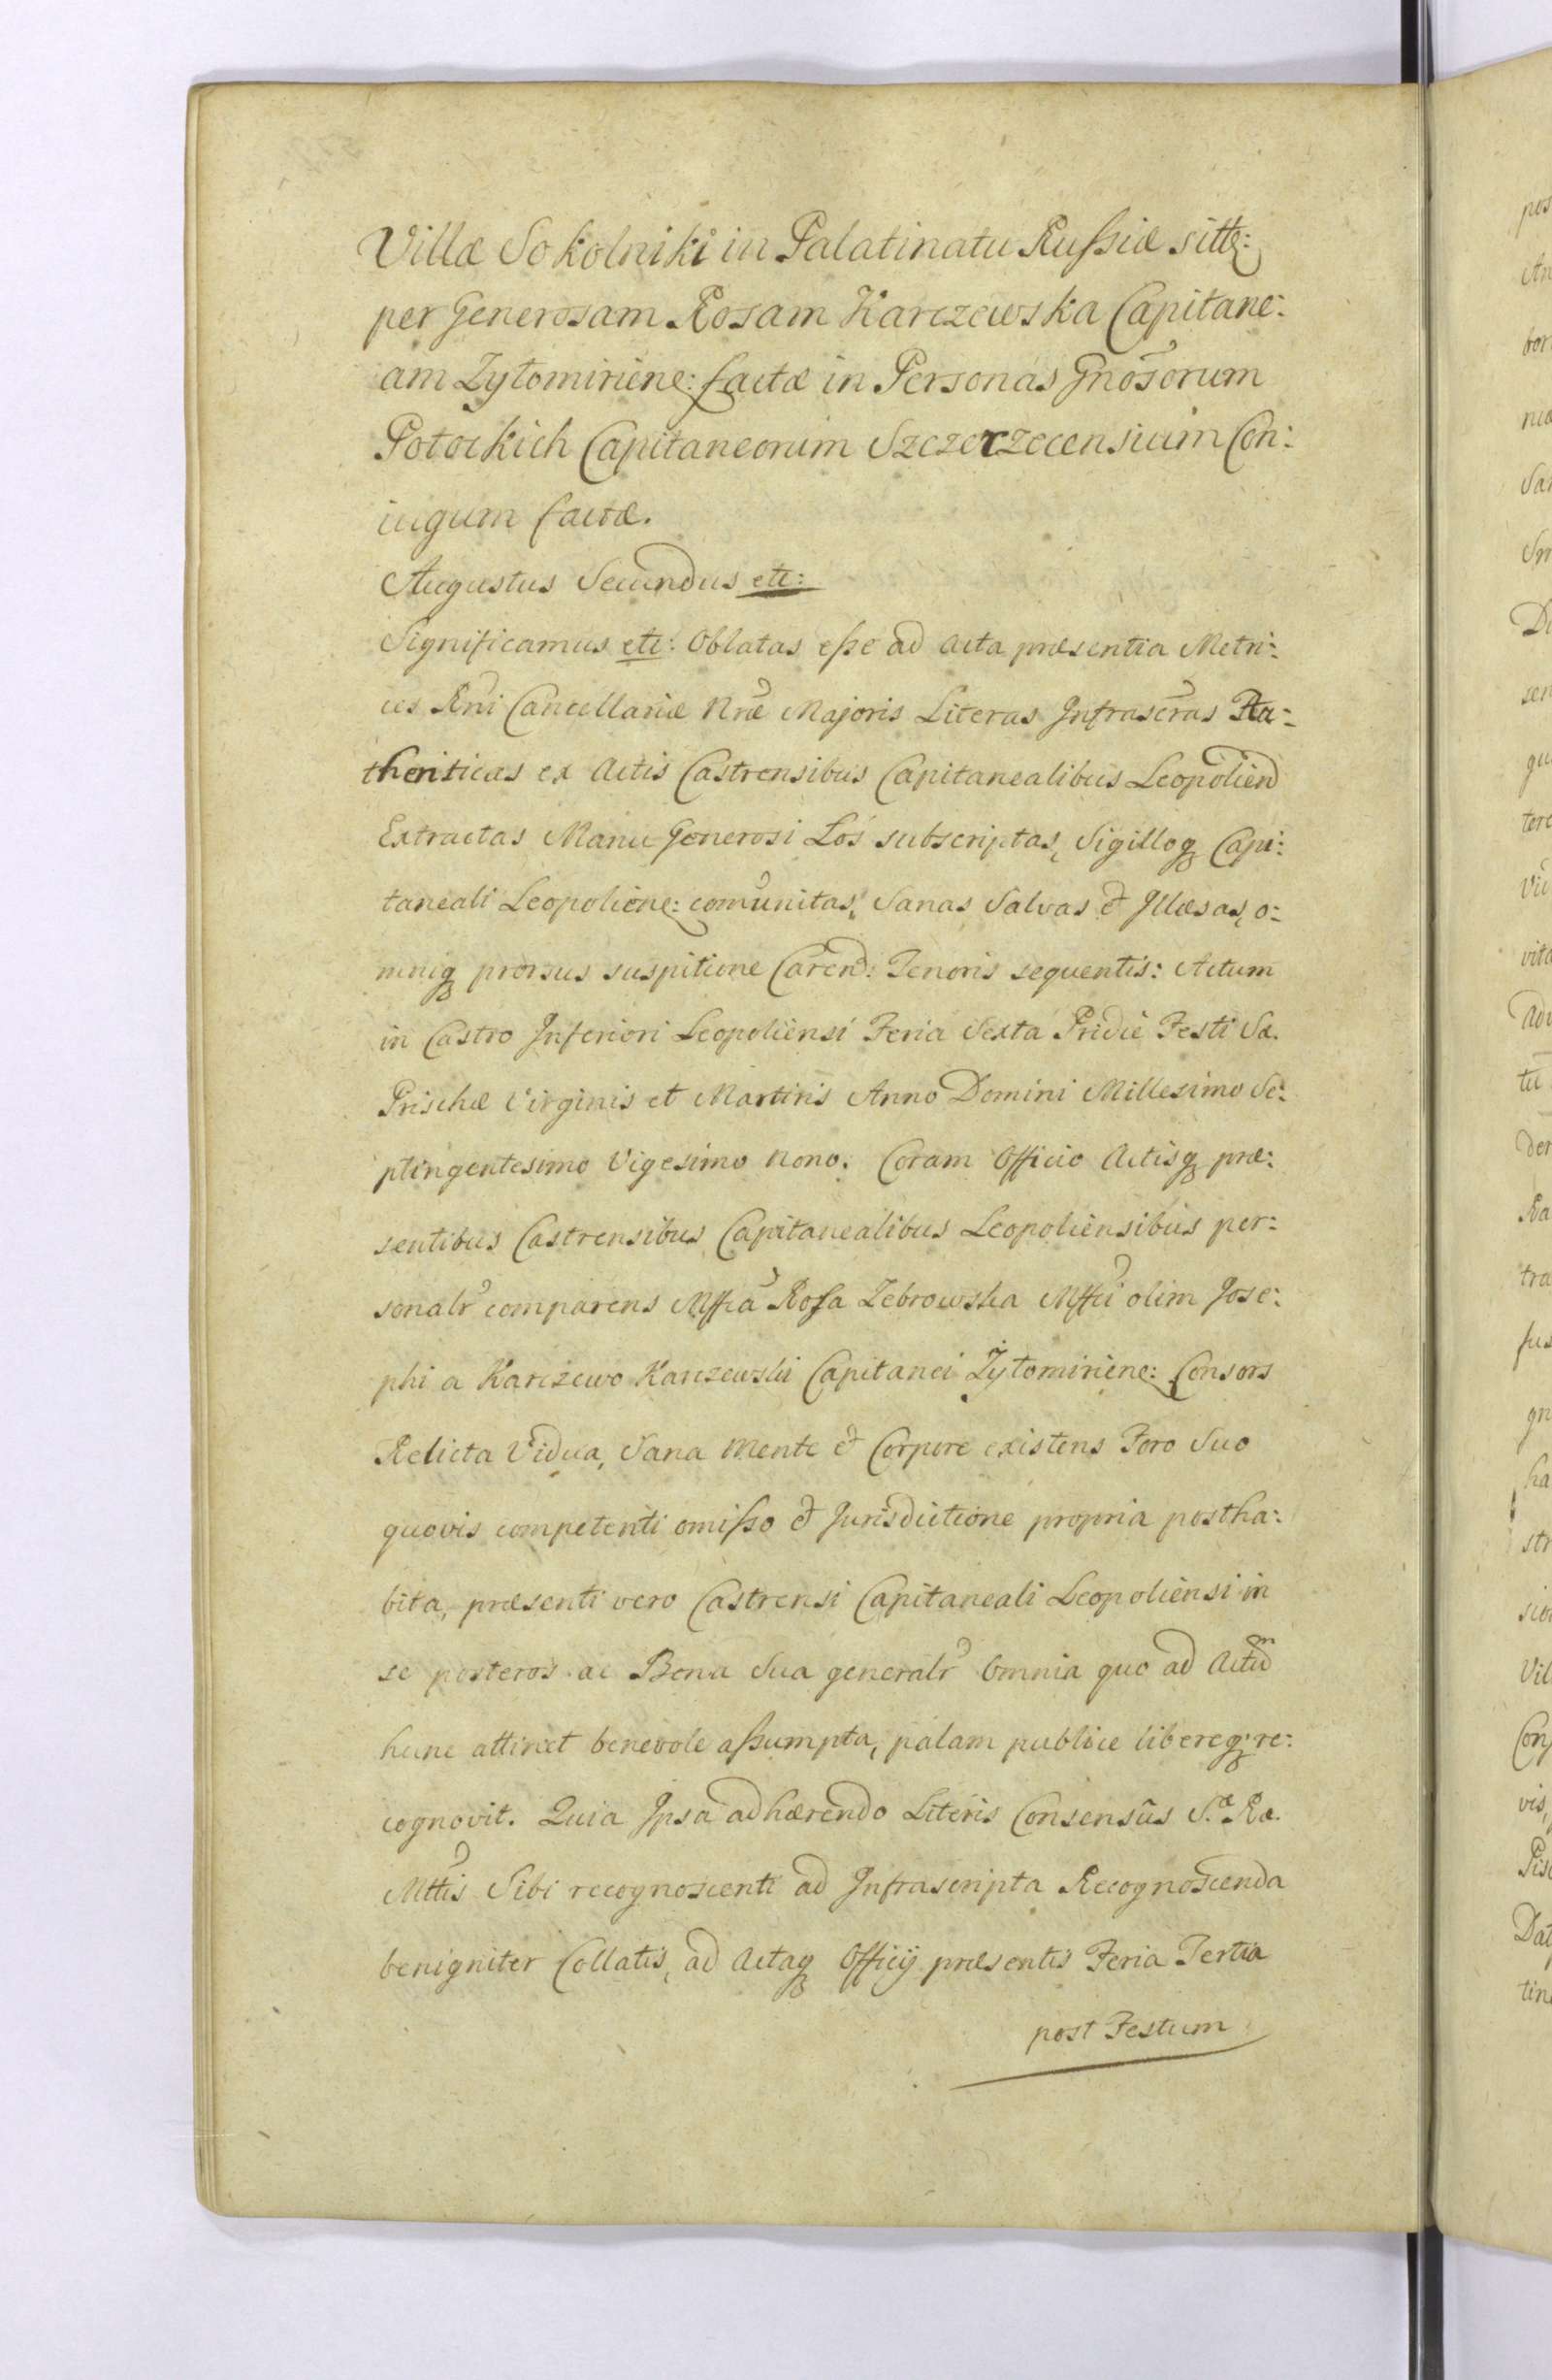 Villæ Sokolniki in Palatinatu Rußiæ sitt:
per Generosam Rosam Karczewska Capitane:
am Zytomiriens: factæ in Personas Gnosorum
Potockich Capitaneorum Szczerzecensium Con:
iugum factæ.
Augustus Secundus etc:
Significamus etc: Oblatas eße ad acta præsentia Metri:
ces Rni Cancellariæ Nræ Majoris Literas Infrascras Au:
thenticas ex Actis Castrensibus Capitanealibus Leopoliens
Extractas Manu Generosi Łoś subscriptas, Sigilloq Capi:
taneali Leopoliens: comunitas, Sanas Salvas et Illæsas, o:
mniq prorsus suspitione Carend: Tenoris sequentis: Actum
in Castro Inferiori Leopoliensi Feria Sexta Pridie Festi Sæ.
Prischæ Virginis et Martiris Anno Domini Millesimo Se:
ptingentesimo Vigesimo Nono. Coram Officio Actisq præ:
sentibus Castrensibus Capitanealibus Leopoliensibus per:
sonalr comparens Mffca Rosa Zebrowska Mffci olim Jose:
phi a Karczewo Karczewski Capitanei Żytomiriens: Consors
Relicta Vidua, Sana Mente et Corpore existens Foro Suo
quovis competenti omißo et Jurisdictione propria postha:
bita, præsenti vero Castrensi Capitaneali Leopoliensi in
se posteros ac Bona Sua generalr Omnia quo ad Actum
hunc attinet benevole aßumpta, palam publice libereq re:
cognovit. Quia Ipsa adhærendo Literis Consensûs S.æ Ræ.
Mttis Sibi recognoscenti ad Infrascripta Recognoscenda
benigniter Collatis, ad Actaq Officij præsentis Feria Tertia
post Festum